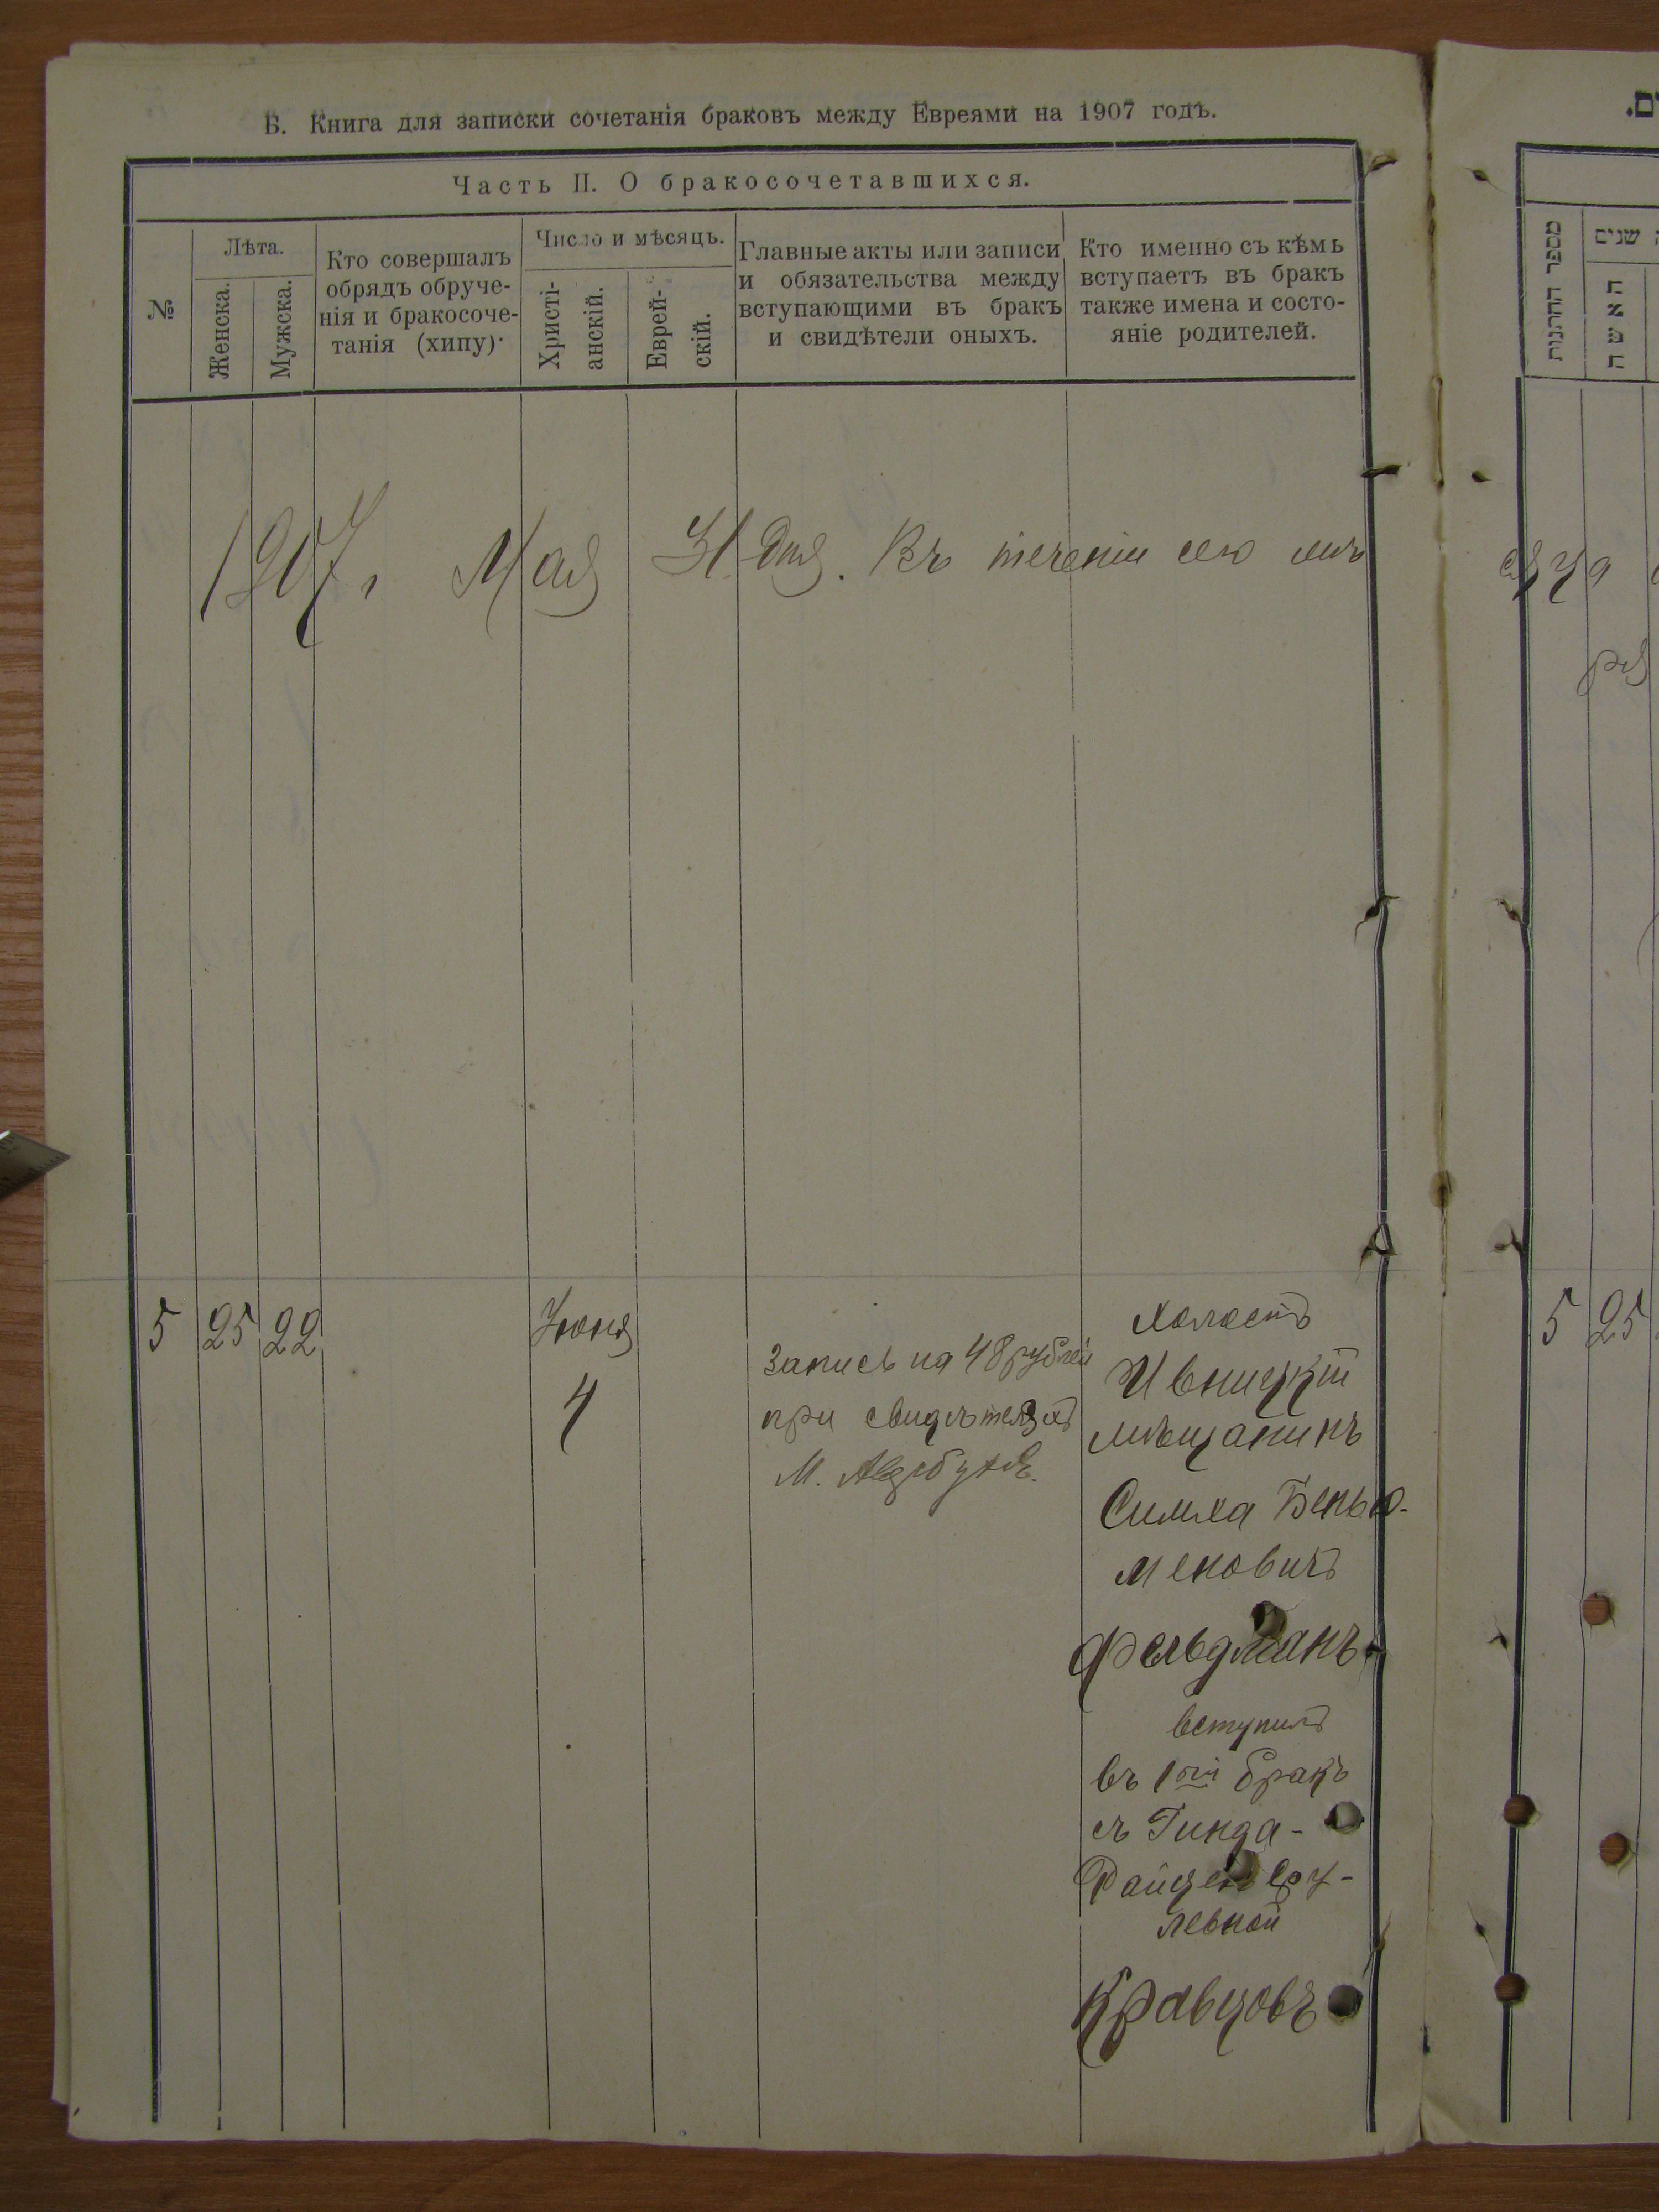 Б. Книга для записки сочетанія браковъ между Евреями на 1907 годъ.
Часть II. О бракосочетавшихся.
№
Лѣта.
Женска.
Мужска.
Кто совершалъ
обрядъ обруче-
нія и бракосоче-
танія (хипу).
Число и мѣсяцъ.
Христі-
анскій.
Еврей-
скій.
Главные акты или записи
и обязательства между
вступающими въ бракъ
и свидѣтели оныхъ.
Кто именно съ кѣмъ
вступаетъ въ бракъ
также имена и состо-
яніе родителей.
1907 г. Мая 31 дня. Въ теченіи сего мѣ
5 25 22
Іюня
4
Запись на 48 рублей
при свидѣтеляхъ
М.
Холостъ
Ивницкій
мѣщанинъ
Симха Бенью-
меновичъ
Фельдманъ
вступилъ
въ 1ый бракъ
съ Гинда-
левной
Кравцовъ
ם.
מספר החתונות
שנים
האשה
сяца
5 25